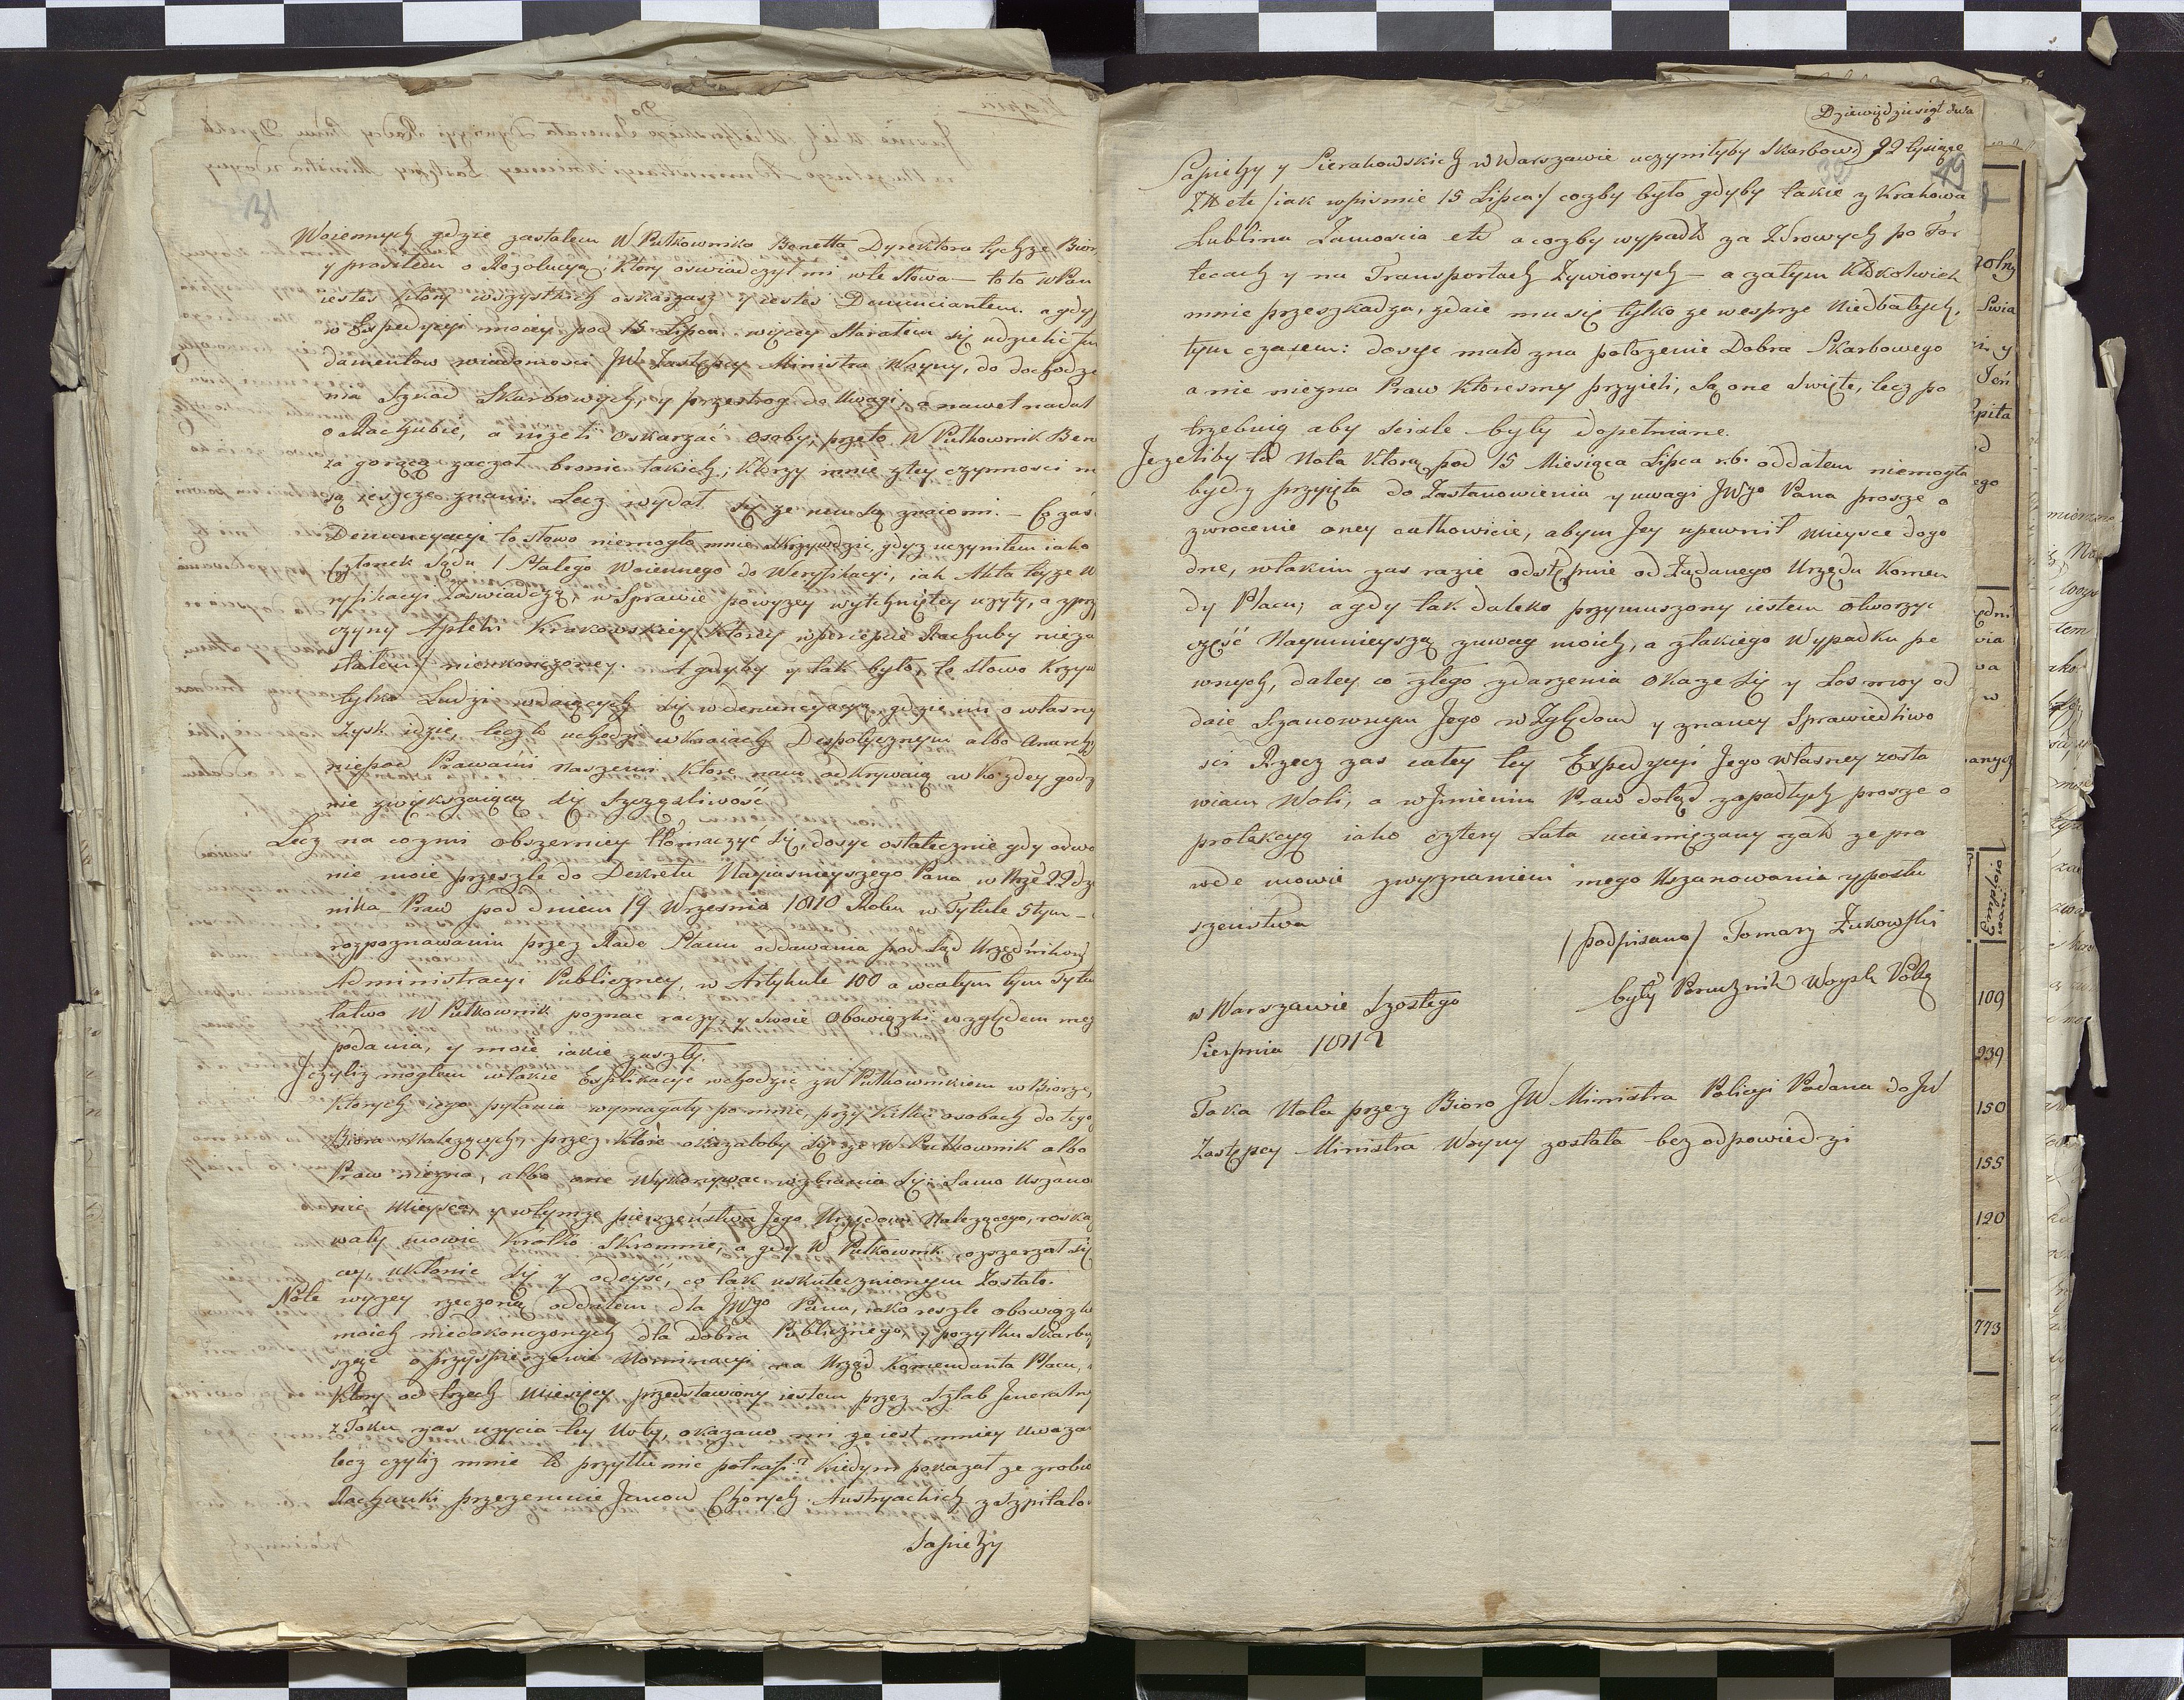 31
Woiennych gdzie zastałem W Pułkownika Bonetta Dyrektora tychże Biór
y prosiłem o Rezolucyą, który oswiadczył mi w te słowa — to to W Pan
iestes który wszystkich oskarżasz y iestes Denunciantem. a gdy
w Expedycyi moiey pod 15 Lipca więcey starałem się udzielić fun
damentow wiadomosci JW Zastępcy Ministra Woyny, do dochodze
nia Szkod Skarbowych, y przestrog do Uwagi, a nawet nadał
o Rachubie, a niżeli oskarżać osoby, przeto W Pułkownik Bon
za gorąco zaczoł bronic takich, którzy innie z tey czynnosci nie
są ieszcze znani: Lecz wydał się że iemu są znaiomi. — Co zaś
Denuncyacyi to słowo niemogło mnie skrzywdzic, gdyż uczyniłem iako
Członek Sądu / Stałego Woiennego do Weryfikacyi, iak Akta teyże We
ryfikacyi zaswiadczą, w Sprawie powyzey wytchniętey użyty, a z przy
czyny Apteki Krakowskiey którey w percepcie Rachuby nieza
stałem / nieskonczoney. A gdyby y tak było, to słowo krzyw
tylko Ludzi wdaiących się w denuncyacyą gdzie im o własny
zysk idzie, lecz to uchodzi w kraiach Despotycznym albo Anarchy
niepod Prawami Naszemi które nam odkrywaią w każdey godz
nie zwiększaiącą się Szczęsliwość
Lecz na cozmi obszerniey tłomaczyć się, dosyc ostatecznie gdy odwo
nie moie przeszle do Dekretu Nayiasnieyszego Pana w Nrze 22 dzie
nika Praw pod dniem 19 Wrzesnia 1810 Roku w Tytule 5tym —
rozpoznawaniu przez Rade Stanu oddawania pod Sąd Urzędnikow
Administracyi Publiczney, w Artykule 100 a wcałym tym Tytu
łatwo W Pułkownik poznac raczy, y swoie Obowiązki względem meg
podania, y moie iakie zaszły.
J czyliż mogłem w takie Explikacye wchodzic z W Pułkownikiem w Biorze,
których iego pytania wymagały po mnie, przy kilku osobach do tego
Biora należących, przez które okazałoby się że W Pułkownik albo
Praw niezna, albo one Wykonywac wzbrania się: Samo Uszano
nie Mieysca y w tymże pierszeństwa Jego Urzędowi Należącego, roska
wały mowic krotko Skromnie, a gdy W Pułkownik rozszerzał się
cey, ukłonic się y odeyść, co tak uskutecznionym Zostało.
Note wyzey rzeczoną oddałem dla JWgo Pana, iako reszte obowiązk
moich niedokonczonych dla Dobra Publicznego y pozytku Skarbu
szęc o przyspieszenie Nominacyi na Urząd Komendanta Placu,
który od trzech Miesięcy przedstawiony iestem przez Sztab Jeneralny
z Toku zas uzycia tey Noty, okazano mi że iest mniey uwaza
lecz czyliż mnie to przytłumic potrafi? kiedym pokazał że zrobio
Rachunki przezemnie Jencow Chorych Austryackich z Szpitalo
Sapiezy
Dziewiędziesiąt dwa
49
Sapiezy y Sierakowskich w Warszawie uczyniłyby Skarbowi 92 tysiące
Złt etc / iak w pismie 15 Lipca / cozby było gdyby takie z Krakowa
Lublina Zamoscia etc a cozby wypadło za Zdrowych po For
tecach y na Transportach Zywionych — a zatym Ktokolwiek
mnie przeszkadza, zdaie mu się tylko że wesprze Niedbałych,
tym czasem: dosyc mało zna położenie Dobra Skarbowego
a nie niezna Praw któresmy przyieli, są one swięte, lecz po
trzebuią aby scisle były dopełniane.
Jezeliby ta Nota którą pod 15 Miesiąca Lipca r.b. oddałem niemogła
bydz przyięta do Zastanowienia y uwagi JWgo Pana prosze o
zwrocenie oney całkowicie, abym Jey upewnił Mieysce dogo
dne, w takim zas razie odstępuie od Ządanego Urzędu Komen
dy Placu; a gdy tak daleko przymuszony iestem otworzyc
część Naymnieyszą zuwag moich, a z takiego Wypadku pe
wnych, daley co złego zdarzenia okaze się y Los moy od
daie Szanownym Jego w Zględom y znaney Sprawiedliwo
sci Rzecz zas całey tey Expedycyi Jego własney zosta
wiam Woli, a w Jmieniu Praw dotąd zapadłych prosze o
protekcyą iako cztery Lata uciemięzany za to ze pra
wde mowie z wyznaniem mego Uszanowania y posłu
szeństwa
/ podpisano / Tomasz Żukowski
były Porucznik Woysk Polz
w Warszawie Szostego
Sierpnia 1812
Taka Nota przez Bioro JW Ministra Policyi Podana do JW
Zastępcy Ministra Woyny została bez odpowiedzi
109
239
150
155
120
773